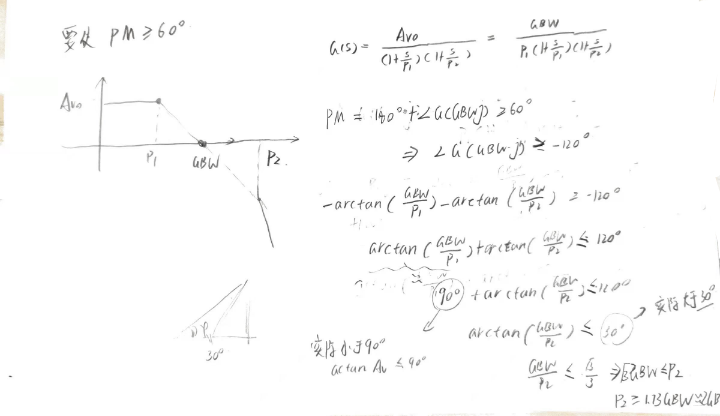 要使 PM ≥ 60°
G(s) = Avo / (1+s/P1)(1+s/P2) = GBW / P1(1+s/P1)(1+s/P2)
Avo
P1
GBW
P2
PM = 180° + ∠G(GBWj) ≥ 60°
⇒ ∠G(GBWj) ≥ -120°
-arctan(GBW/P1) - arctan(GBW/P2) ≥ -120°
arctan(GBW/P1) + arctan(GBW/P2) ≤ 120°
90° + arctan(GBW/P2) ≤ 120°
arctan(GBW/P2) ≤ 30°
实际大于30°
实际小于90°
actan Av ≤ 90°
GBW/P2 ≤ √3/3 ⇒ √3GBW ≤ P2
P2 ≥ 1.73GBW ≈ 2GB
30°